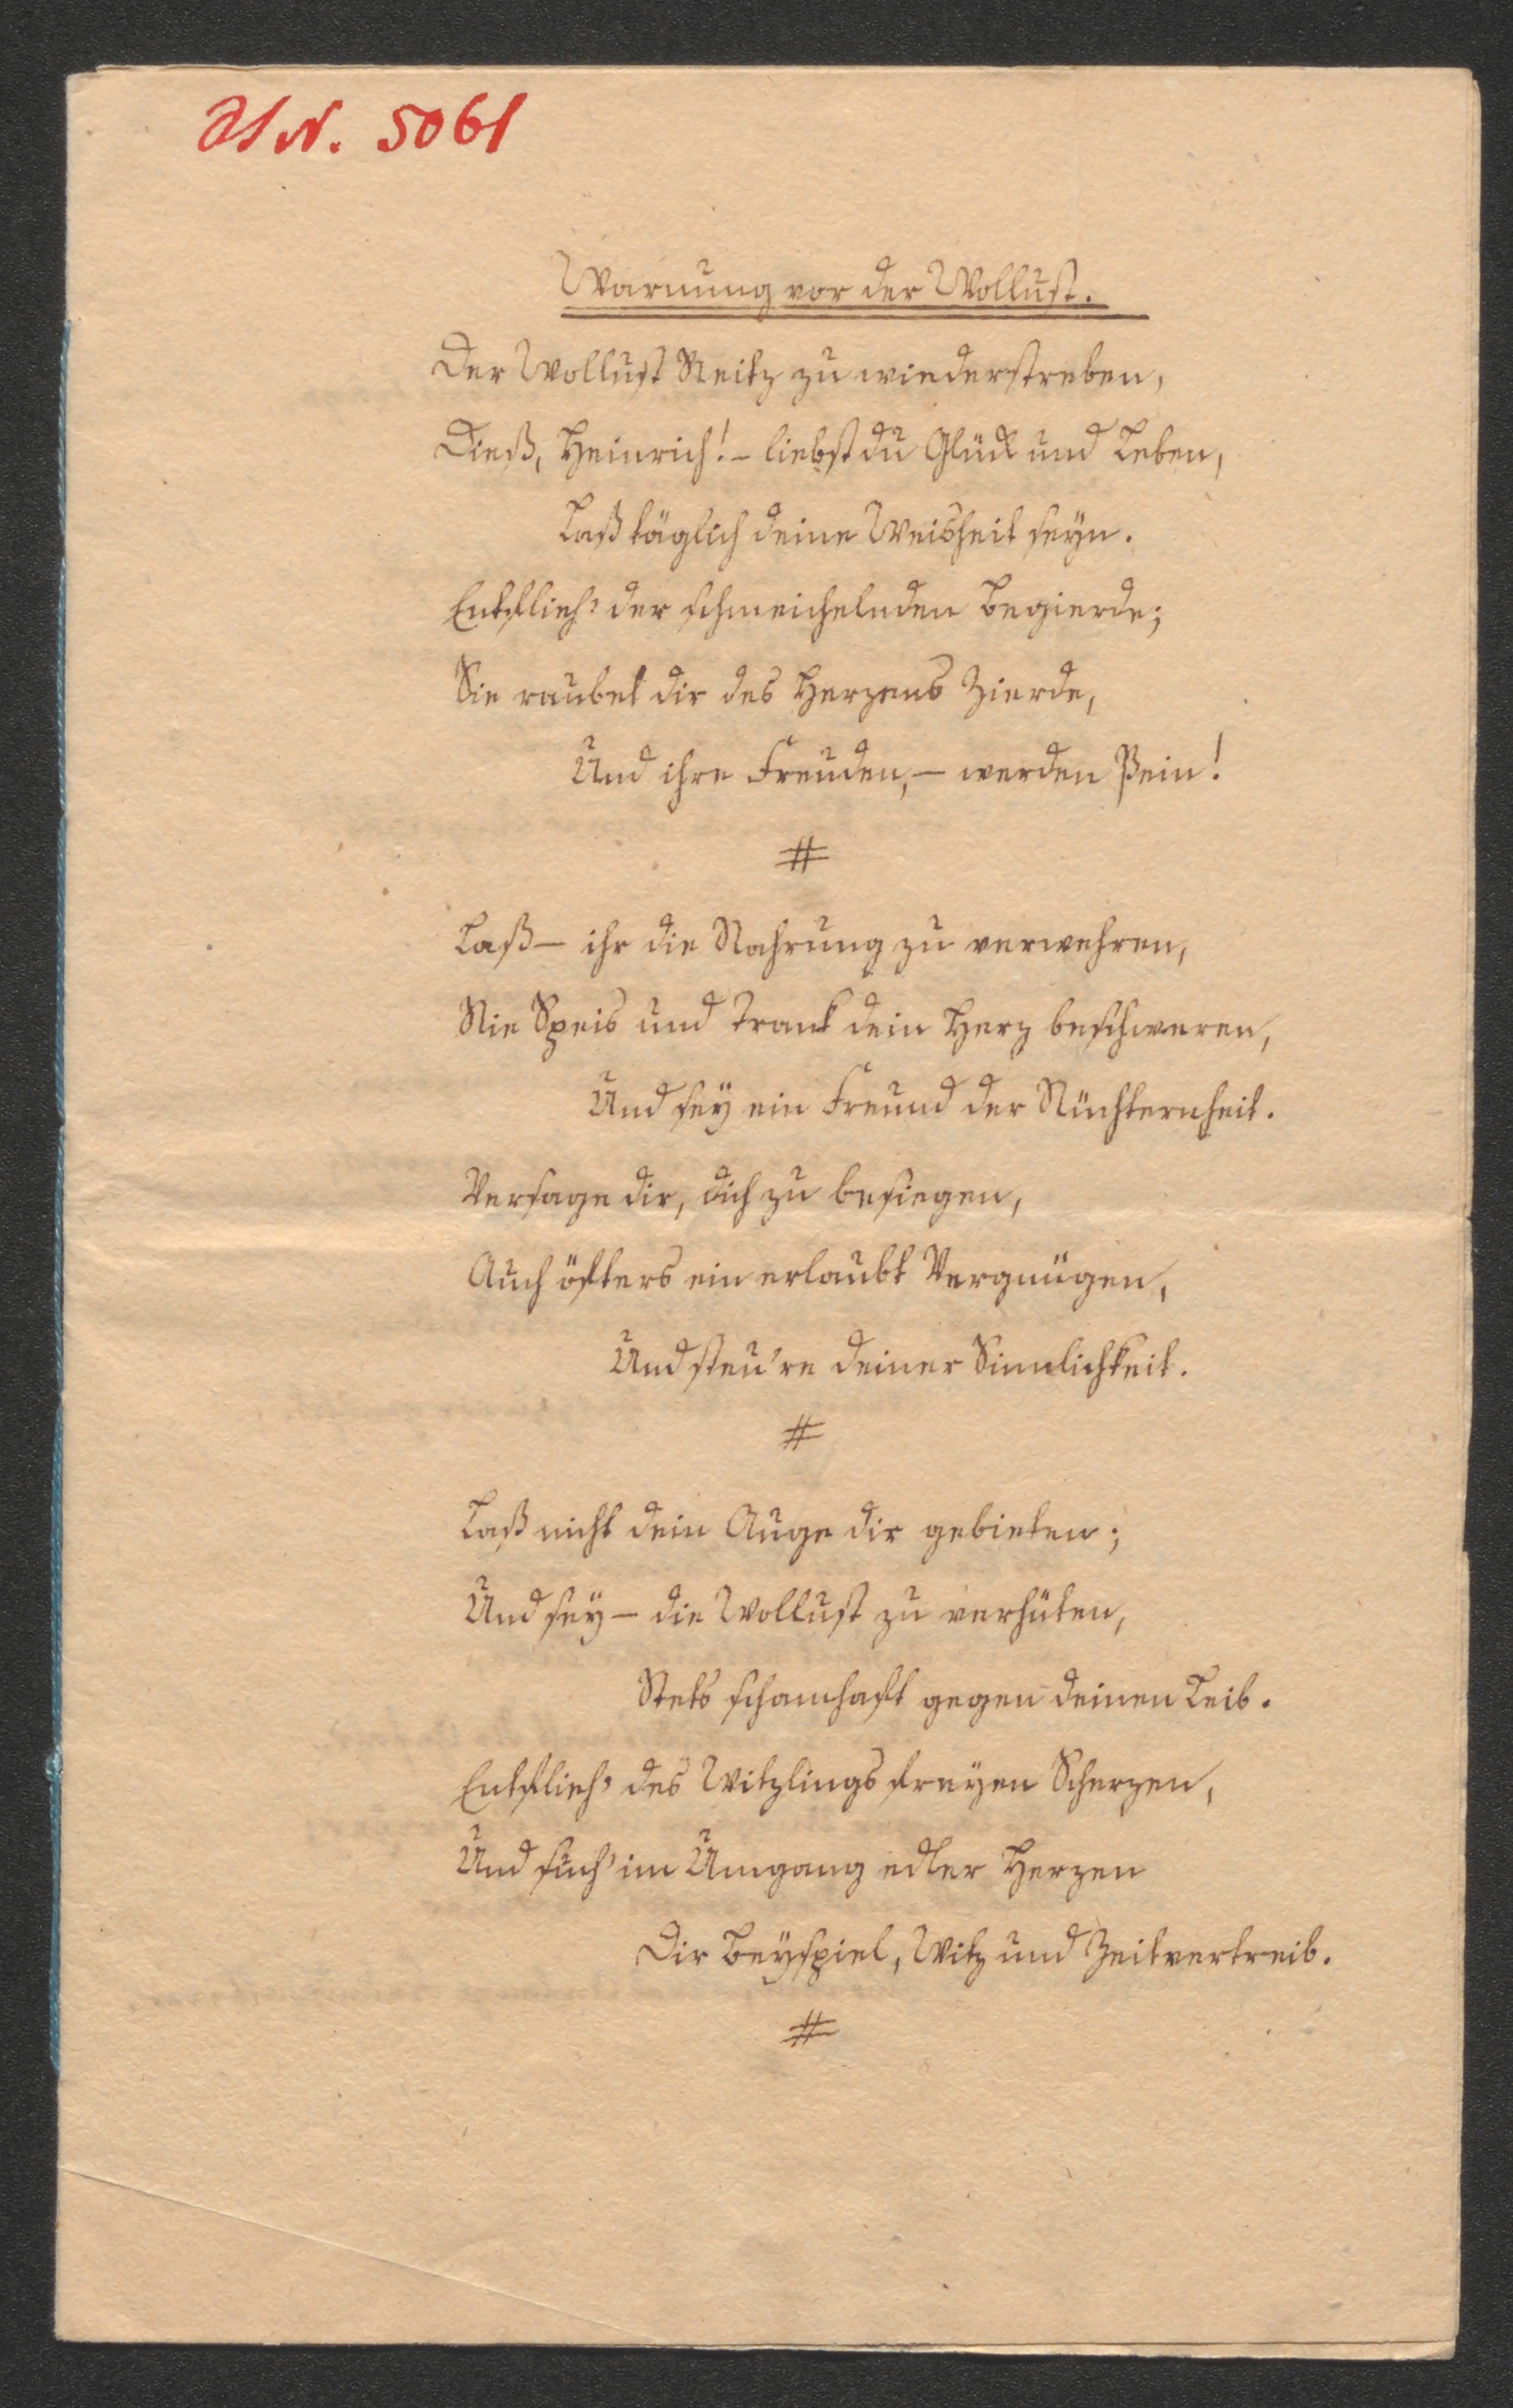 AN. 5061
Warnung vor der Wollust.
Der Wollust Reitz zu wiederstreben,
Dieß, Heinrich! – liebst du Glück und Leben,
Laß täglich deine Weisheit seyn.
Entflieh' der schmeichelnden Begierde;
Sie raubet dir des Herzens Zierde,
Und ihre Freuden, – werden Pein!
#
Laß – ihr die Nahrung zu verwehren,
Nie Speis und Trank dein Herz beschweren,
Und seÿ ein Freund der Nüchternheit.
Versage dir, dich zu besiegen,
Auch öfters ein erlaubt Vergnügen,
Und steu're deiner Sinnlichkeit.
#
Laß nicht dein Auge dir gebieten;
Und seÿ – die Wollust zu verhüten,
Stets schamhaft gegen deinen Leib.
Entflieh' des Witzlings freÿen Scherzen,
Und such' im Umgang edler Herzen
Dir Beÿspiel, Witz und Zeitvertreib.
#